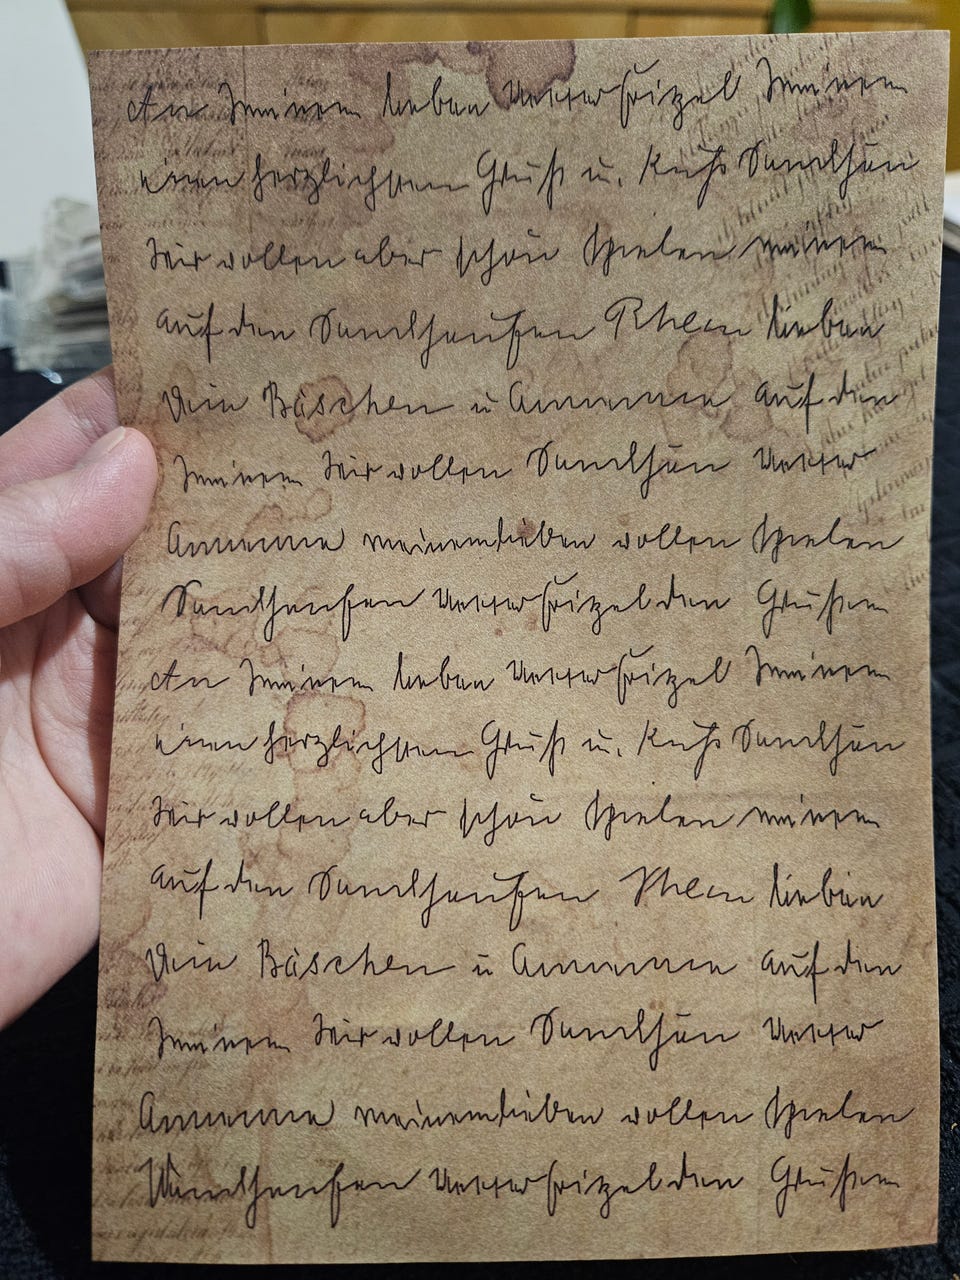 An meinem lieben Vetter Fritzel meinem
einen herzlichsten Gruß u. Kuß Sandhäu
Wir wollen aber schön spielen meinem
auf den Sandhaufen lieben
Dein Bäschen u Annemie auf den
meinem Wir wollen Sandhäu Vetter
Annemie meinem lieben wollen spielen
Sandhaufen Vetter Fritzel den Grüßen
An meinem lieben Vetter Fritzel meinem
einen herzlichsten Gruß u. Kuß Sandhäu
Wir wollen aber schön spielen meinem
auf den Sandhaufen lieben
Dein Bäschen u Annemie auf den
meinem Wir wollen Sandhäu Vetter
Annemie meinem lieben wollen spielen
Sandhaufen Vetter Fritzel den Grüßen